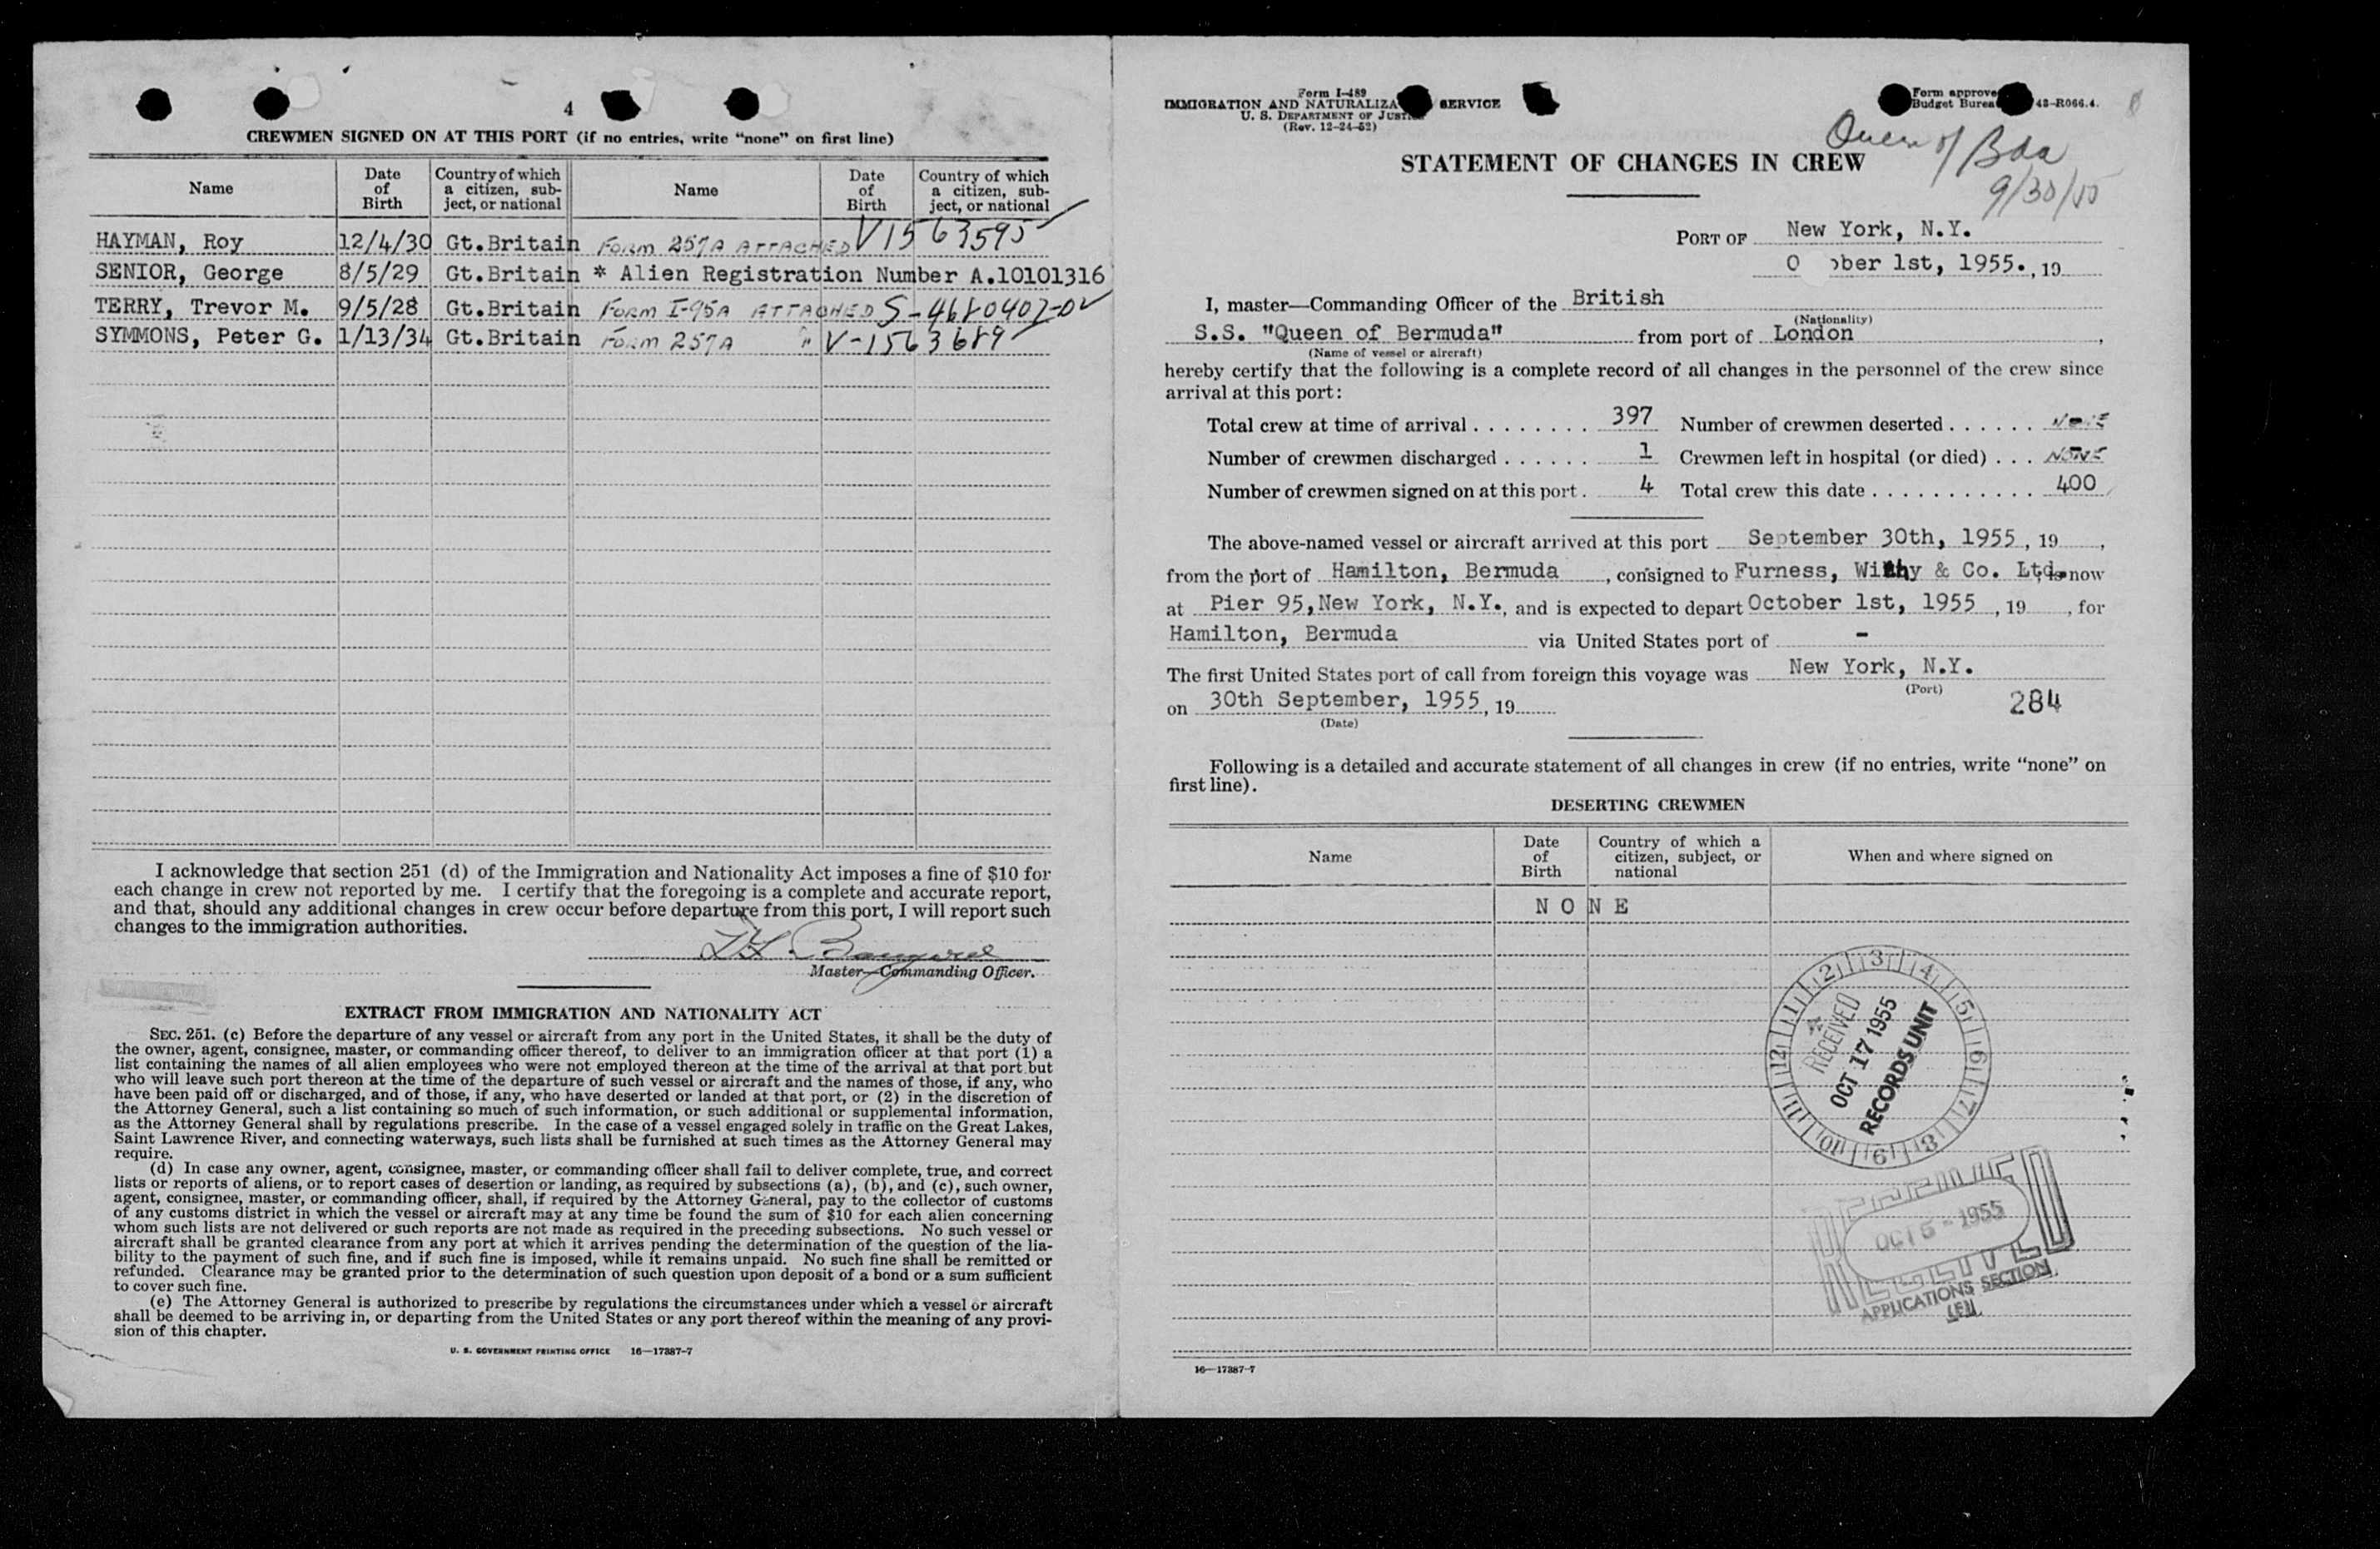 4
CREWMEN SIGNED ON AT THIS PORT (if no entries, write "none" on first line)
Name Date of Birth Country of which a citizen, subject, or national Name Date of Birth Country of which a citizen, subject, or national
HAYMAN, Roy 12/4/30 Gt.Britain FORM 257A ATTACHED V1563595
SENIOR, George 8/5/29 Gt.Britain * Alien Registration Number A.10101316
TERRY, Trevor M. 9/5/28 Gt.Britain FORM I-95A ATTACHED
SYMMONS, Peter G. 1/13/34 Gt.Britain FORM 257A " V-1563689
I acknowledge that section 251 (d) of the Immigration and Nationality Act imposes a fine of $10 for
each change in crew not reported by me. I certify that the foregoing is a complete and accurate report,
and that, should any additional changes in crew occur before departure from this port, I will report such
changes to the immigration authorities.
Master—Commanding Officer.
EXTRACT FROM IMMIGRATION AND NATIONALITY ACT
SEC. 251. (c) Before the departure of any vessel or aircraft from any port in the United States, it shall be the duty of
the owner, agent, consignee, master, or commanding officer thereof, to deliver to an immigration officer at that port (1) a
list containing the names of all alien employees who were not employed thereon at the time of the arrival at that port but
who will leave such port thereon at the time of the departure of such vessel or aircraft and the names of those, if any, who
have been paid off or discharged, and of those, if any, who have deserted or landed at that port, or (2) in the discretion of
the Attorney General, such a list containing so much of such information, or such additional or supplemental information,
as the Attorney General shall by regulations prescribe. In the case of a vessel engaged solely in traffic on the Great Lakes,
Saint Lawrence River, and connecting waterways, such lists shall be furnished at such times as the Attorney General may
require.
(d) In case any owner, agent, consignee, master, or commanding officer shall fail to deliver complete, true, and correct
lists or reports of aliens, or to report cases of desertion or landing, as required by subsections (a), (b), and (c), such owner,
agent, consignee, master, or commanding officer, shall, if required by the Attorney General, pay to the collector of customs
of any customs district in which the vessel or aircraft may at any time be found the sum of $10 for each alien concerning
whom such lists are not delivered or such reports are not made as required in the preceding subsections. No such vessel or
aircraft shall be granted clearance from any port at which it arrives pending the determination of the question of the lia-
bility to the payment of such fine, and if such fine is imposed, while it remains unpaid. No such fine shall be remitted or
refunded. Clearance may be granted prior to the determination of such question upon deposit of a bond or a sum sufficient
to cover such fine.
(e) The Attorney General is authorized to prescribe by regulations the circumstances under which a vessel or aircraft
shall be deemed to be arriving in, or departing from the United States or any port thereof within the meaning of any provi-
sion of this chapter.
U. S. GOVERNMENT PRINTING OFFICE 16—17387-7
Form I-489
IMMIGRATION AND NATURALIZA SERVICE
U. S. DEPARTMENT OF JUSTI
(Rev. 12-24-52)
Form approve
Budget Burea 43-R066.4.
Queen of Bda
9/30/55
STATEMENT OF CHANGES IN CREW
PORT OF New York, N.Y.
O ber 1st, 1955., 19
I, master—Commanding Officer of the British
(Nationality)
S.S. "Queen of Bermuda" from port of London,
(Name of vessel or aircraft)
hereby certify that the following is a complete record of all changes in the personnel of the crew since
arrival at this port:
Total crew at time of arrival 397 Number of crewmen deserted NONE
Number of crewmen discharged 1 Crewmen left in hospital (or died) NONE
Number of crewmen signed on at this port. 4 Total crew this date 400
The above-named vessel or aircraft arrived at this port September 30th, 1955, 19 ,
from the port of Hamilton, Bermuda, consigned to Furness, Withy & Co. Ltd. is now
at Pier 95, New York, N.Y., and is expected to depart October 1st, 1955, 19 , for
Hamilton, Bermuda via United States port of -
The first United States port of call from foreign this voyage was New York, N.Y.
(Port)
on 30th September, 1955, 19
(Date)
284
Following is a detailed and accurate statement of all changes in crew (if no entries, write "none" on
first line).
DESERTING CREWMEN
Name Date of Birth Country of which a citizen, subject, or national When and where signed on
N O N E
1 2 3 4 5 6 7 8 9 10 11 12
RECEIVED
OCT 17 1955
RECORDS UNIT
RECEIVED
OCT 5 - 1955
APPLICATIONS SECTION
16—17387-7